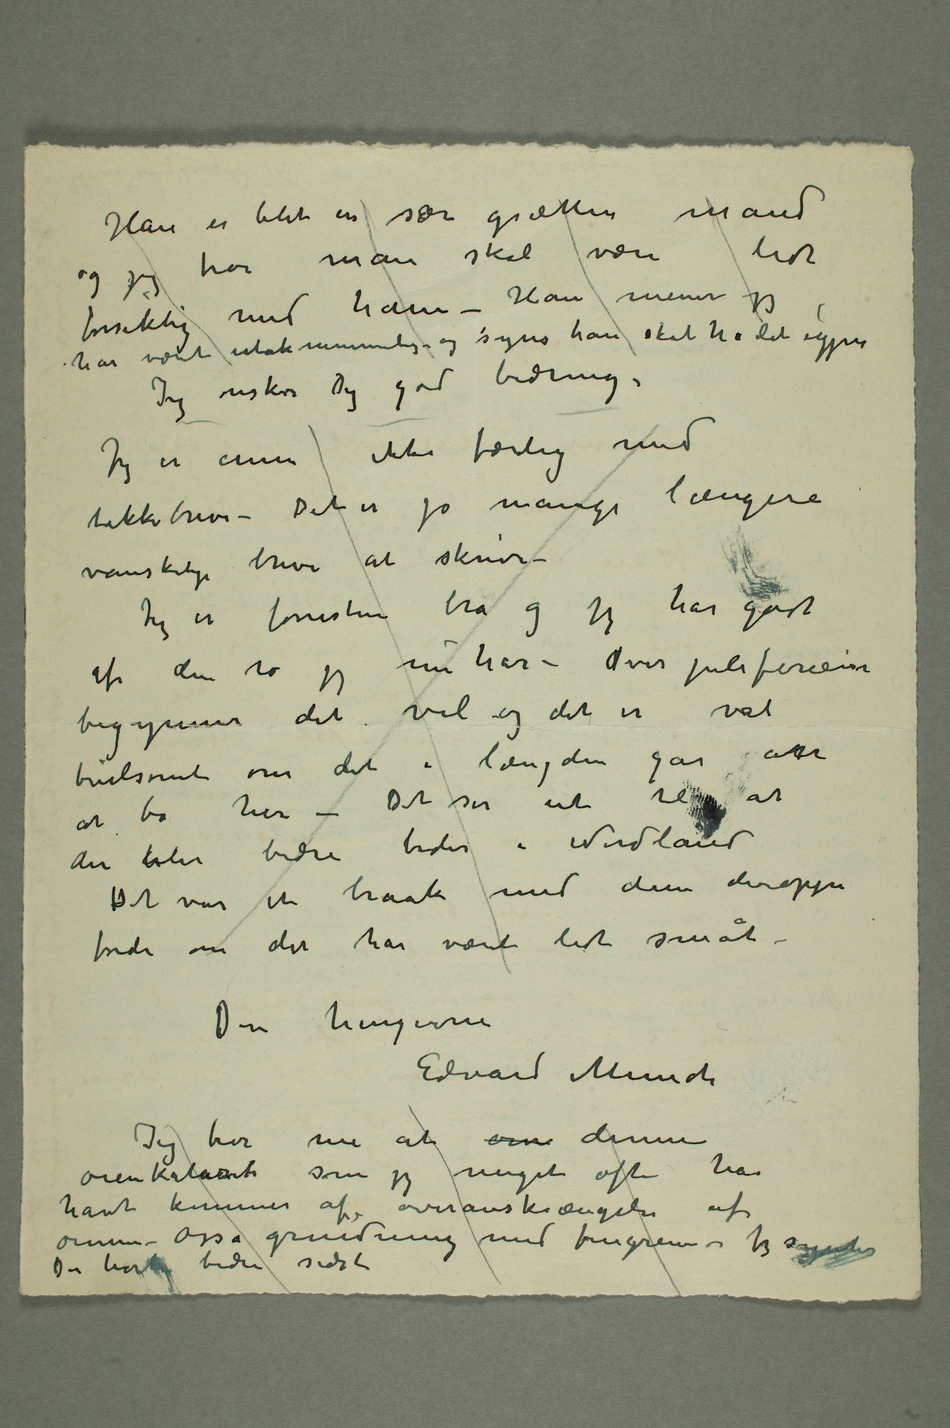 Han er blet en sær grætten mand
og jeg tror man skal være lidt
forsiktig med ham – Han mener jeg
har været utaknemmelig – og synes han skal ha det igjen
Jeg ønsker Dig god bedring.
Jeg er ennu ikke færdig med
takkebreve – Det er jo mange længere
vanskelige breve at skrive –
Jeg er forresten bra og jeg har godt
af den ro jeg nu har – Over juleferien
begynner det vel og det er vel
tvilsomt om det i længden går an
at bo her – Det ser ut til at
der blir bedre tider i Nordland
Det var et braak med dem deroppe
fordi om det har været lidt småt –
Din hengivne
Edvard Munch
Jeg tror nu at denne
øienkatarrh som jeg meget ofte har
havt kommer af overanstrængelse af
øinene – Også gnidning med fingrene – Jeg synes
Du bedre sidst